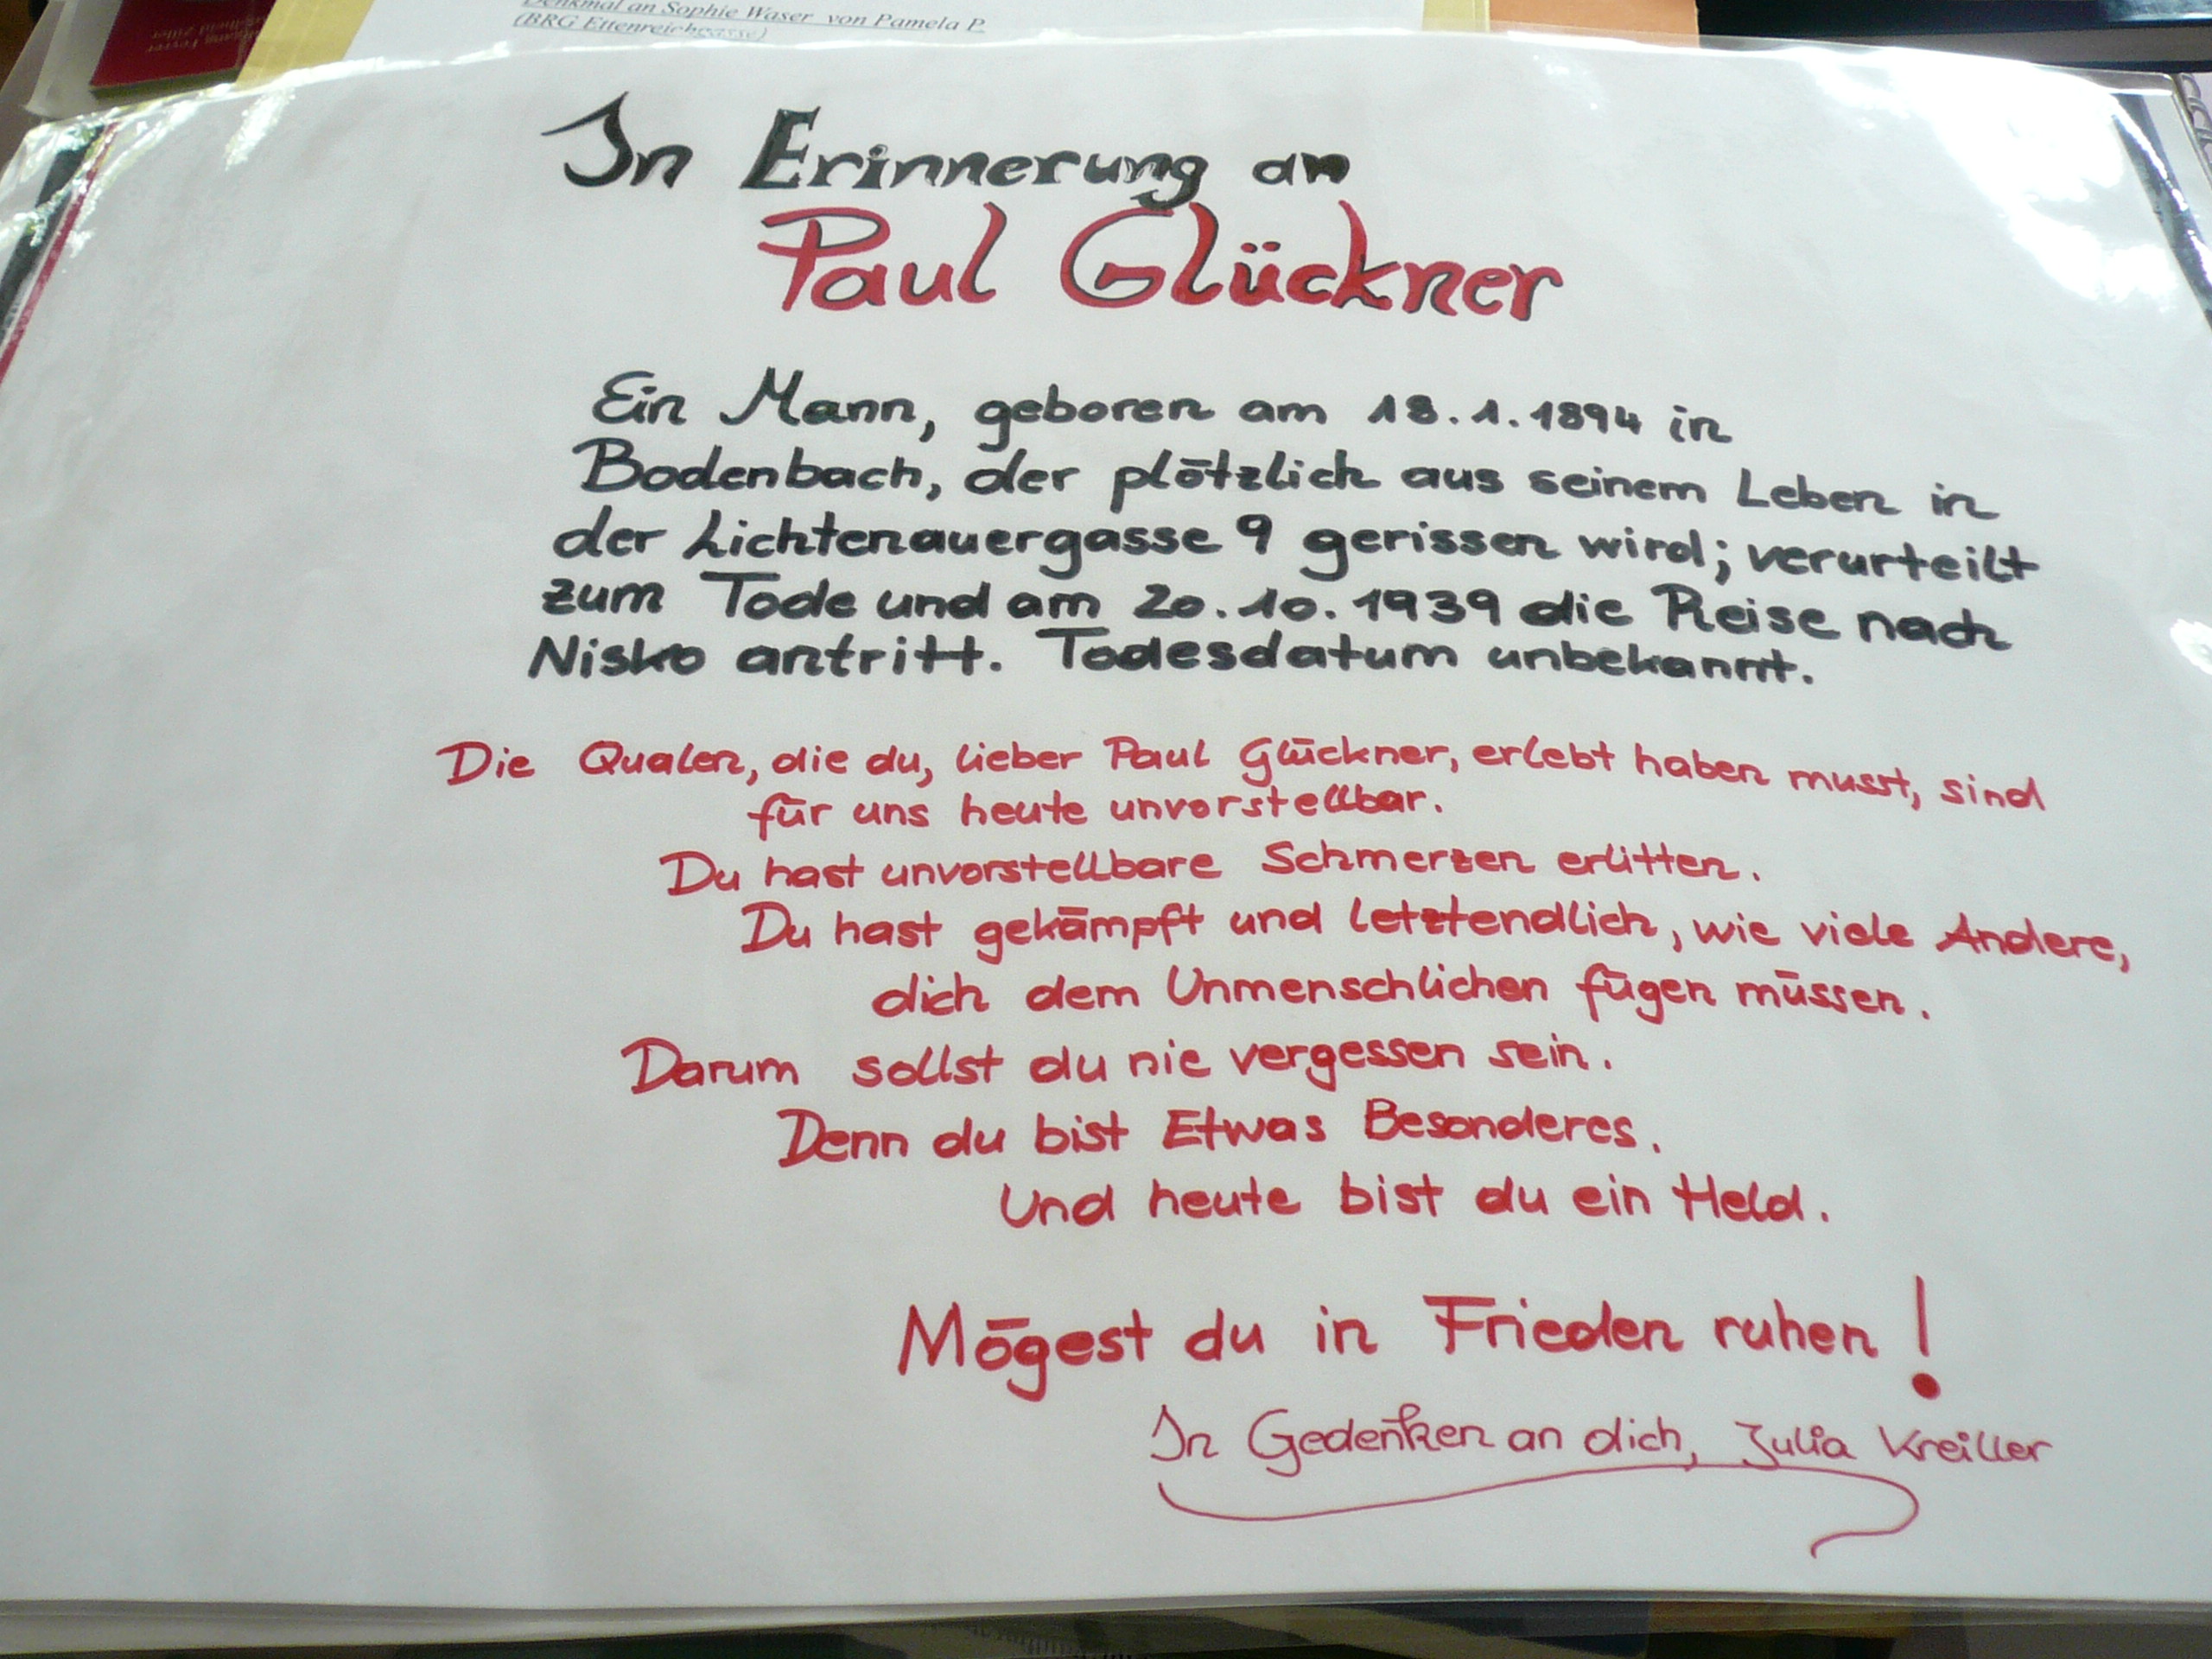 Denkmal an Sophie Waser von Pamela P.
(BRG Ettenreichgasse)
In Erinnerung an
Paul Glückner
Ein Mann, geboren am 18.1.1894 in
Bodenbach, der plötzlich aus seinem Leben in
der Lichtenauergasse 9 gerissen wird; verurteilt
zum Tode und am 20.10.1939 die Reise nach
Nisko antritt. Todesdatum unbekannt.
Die Qualen, die du, lieber Paul Glückner, erlebt haben musst, sind
für uns heute unvorstellbar.
Du hast unvorstellbare Schmerzen erlitten.
Du hast gekämpft und letztendlich, wie viele Andere,
dich dem Unmenschlichen fügen müssen.
Darum sollst du nie vergessen sein.
Denn du bist Etwas Besonderes.
Und heute bist du ein Held.
Mögest du in Frieden ruhen!
In Gedenken an dich, Julia Kreiller